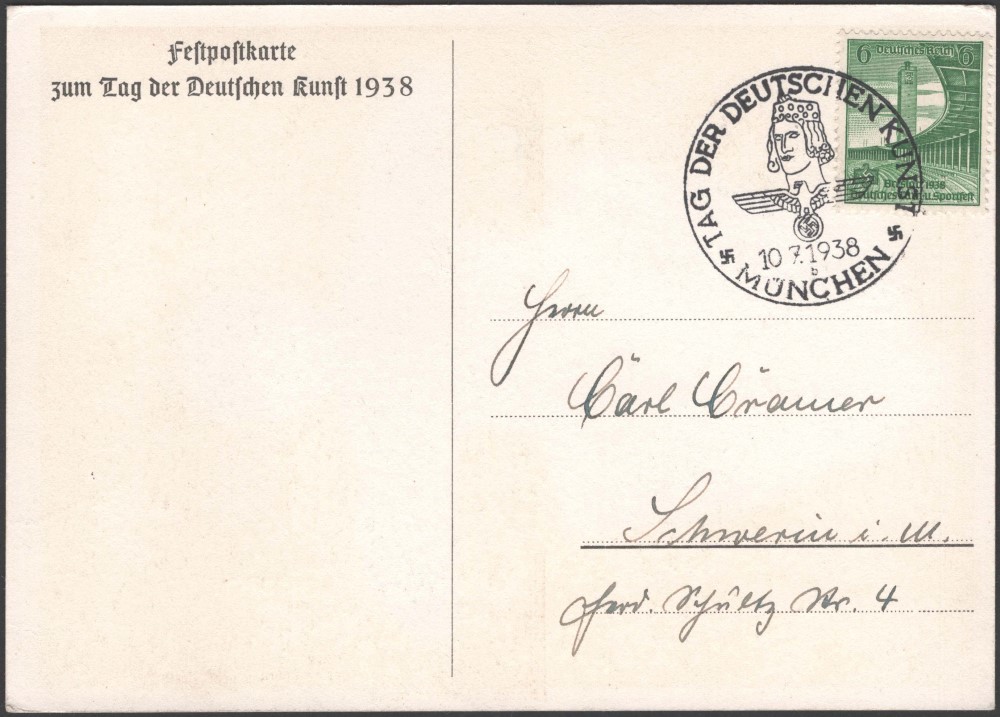 Festpostkarte
zum Tag der Deutschen Kunst 1938
6 Deutsches Reich 6
Breslau 1938
Deutsches Turn u. Sportfest
TAG DER DEUTSCHEN KUNST
10.7.1938
b
MÜNCHEN
Herrn
Carl Cramer
Schwerin i. M.
Ferd. Schultz Str. 4